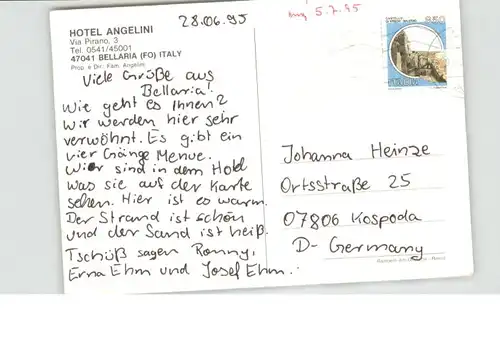 28.06.95
5.7.95
HOTEL ANGELINI
Via Pirano, 3
Tel. 0541/45001
47041 BELLARIA (FO) ITALY
Prop. e Dir. Fam. Angelini
Viele Grüße aus
Bellaria!
Wie geht es Ihnen?
Wir werden hier sehr
verwöhnt. Es gibt ein
vier Gänge Menue.
Wir sind in dem Hotel
was sie auf der Karte
sehen. Hier ist es warm.
Der Strand ist schön
und der Sand ist heiß.
Tschüß sagen Ronny,
Erna Ehm und Josef Ehm.
850
Johanna Heinze
Ortsstraße 25
07806 Kospoda
D-Germany